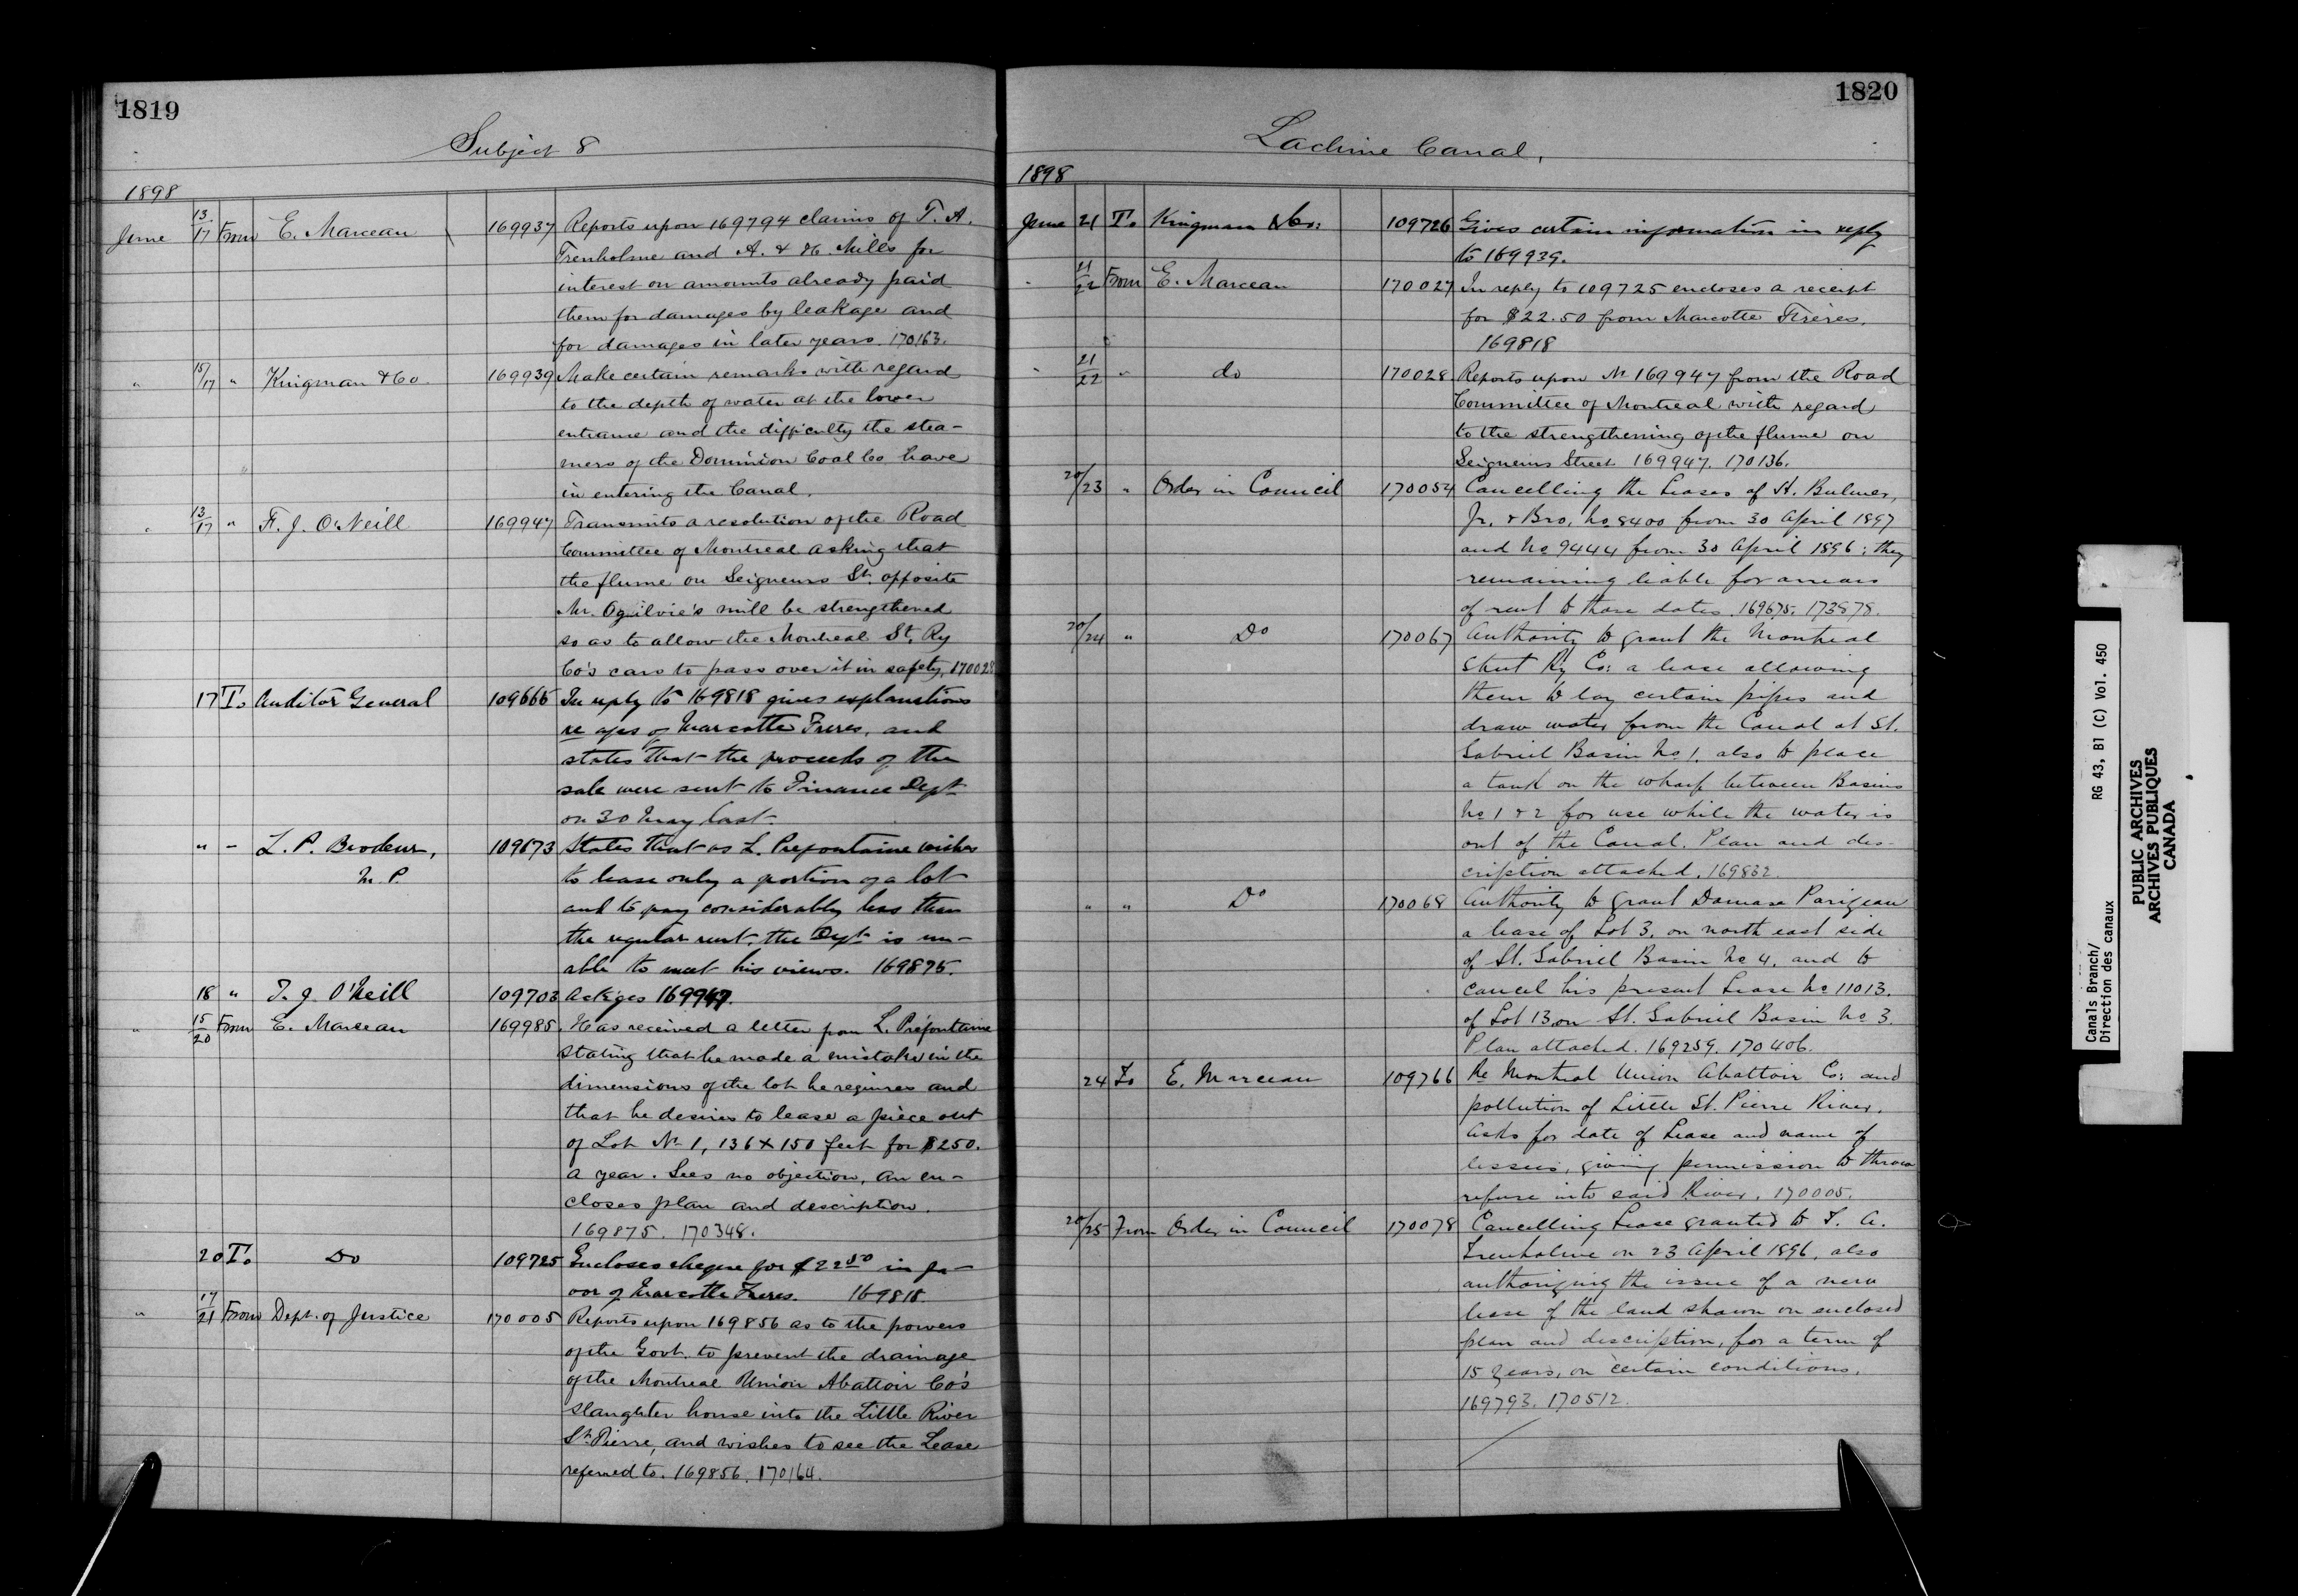 1819
Subject 8
1898
June 13/17 From E. Marceau 169937 Reports upon 169794 claims of T. A.
Trenholme and A. & H. Mills for
interest on amounts already paid
them for damages by leakage and
for damages in later years. 170163.
" 15/17 " Kingman & Co. 169939 Make certain remarks with regard
to the depth of water at the lower
entrance and the difficulty the stea-
mers of the Dominion Coal Co. have
in entering the Canal.
" 13/17 " F. J. O'Neill 169947 Transmits a resolution of the Road
Committee of Montreal asking that
the flume on Seigneurs St. opposite
Mr. Ogilvie's mill be strengthened
so as to allow the Montreal St. Ry
Co's cars to pass over it in safety, 170028
17 To Auditor General 109666 In reply to 169818 gives explanations
re a/cs of Marcotte Freres, and
states that the proceeds of the
sale were sent to Finance Dept
on 30 May last.
" – L. P. Brodeur, 109673 States that as L. Prefontaine wishes
M. P. to lease only a portion of a lot
and to pay considerably less than
the regular rent, the Dept is un-
able to meet his views. 169875.
18 " F. J. O'Neill 109703 Ackges 169947.
" 15/20 From E. Marceau 169985. Has received a letter from L. Préfontaine
stating that he made a mistake in the
dimensions of the lot he requires and
that he desires to lease a piece out
of Lot No 1, 136 x 150 feet for $250.
a year. Sees no objection, an en-
closes plan and description.
169875. 170348.
20 To Do 109725 Encloses cheque for $22.50 in fa-
vor of Marcotte Freres. 169818
" 17/21 From Dept. of Justice 170005 Reports upon 169856 as to the powers
of the Govt. to prevent the drainage
of the Montreal Union Abattoir Co's
slaughter house into the Little River
St. Pierre, and wishes to see the Lease
referred to. 169856. 170164.
1820
Lachine Canal,
1898
June 21 To Kingman & Co: 109726 Gives certain information in reply
to 169939.
" 21/22 From E. Marceau 170027 In reply to 109725 encloses a receipt
for $22.50 from Marcotte Frères.
169818
" 21/22 " do 170028 Reports upon No 169947 from the Road
Committee of Montreal with regard
to the strengthening of the flume on
Seigneurs Street. 169947. 170136.
20/23 " Order in Council 170054 Cancelling the Leases of H. Bulmer,
Jr. & Bro. No 8400 from 30 April 1897
and No 9444 from 30 April 1896; they
remaining liable for arrears
of rent to those dates. 169675. 173878.
20/24 " Do 170067 Authority to grant the Montreal
Street Ry Co: a lease allowing
them to lay certain pipes and
draw water from the Canal at St.
Gabriel Basin No 1, also to place
a tank on the wharf between Basins
No 1 & 2 for use while the water is
out of the Canal. Plan and des-
cription attached. 169832.
" " Do 170068 Authority to grant Damase Parizeau
a lease of Lot 3, on north east side
of St. Gabriel Basin No 4, and to
cancel his present Lease No 11013.
of Lot 13 on St. Gabriel Basin No 3.
Plan attached. 169259. 170406.
24 To E. Marceau 109766 Re Montreal Union Abattoir Co: and
pollution of Little St. Pierre River.
Asks for date of Lease and name of
lessees, giving permission to throw
refuse into said River. 170005.
20/25 From Order in Council 170078 Cancelling Lease granted to T. A.
Trenholme on 23 April 1896, also
authorizing the issue of a new
lease of the land shown on enclosed
plan and description, for a term of
15 years, on certain conditions.
169793. 170512.
Canals Branch/
Direction des canaux
RG 43, B1 (C) Vol. 450
PUBLIC ARCHIVES
ARCHIVES PUBLIQUES
CANADA